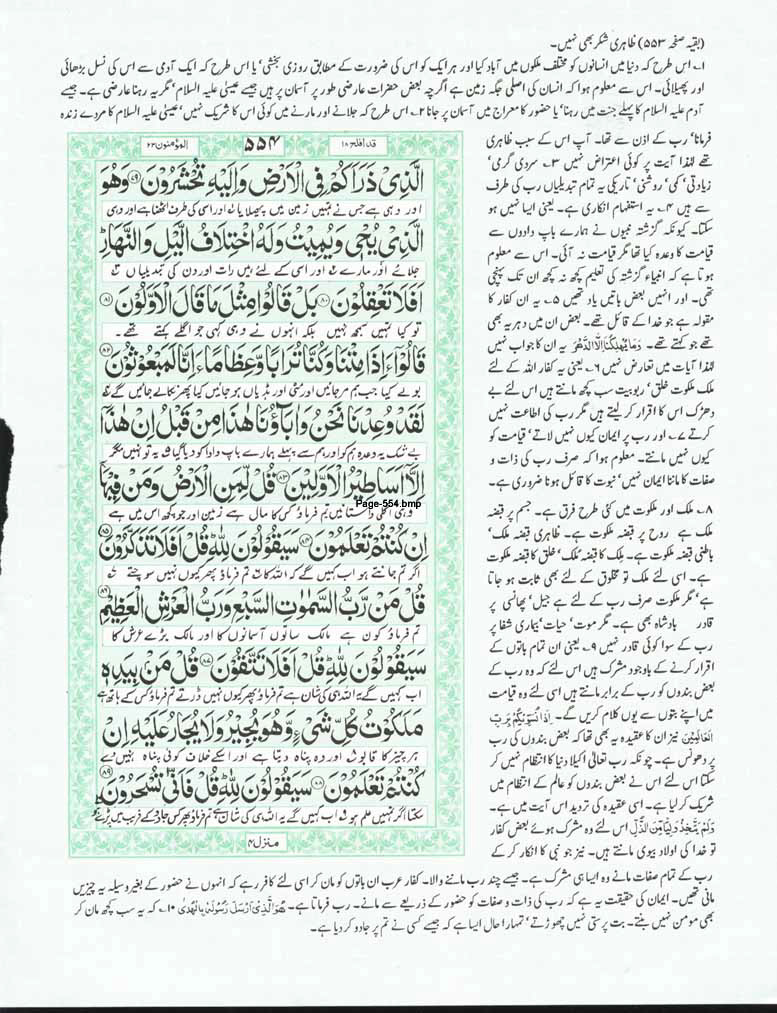 (بقیہ صفحہ ۵۵۳) ظاہری شکر بھی نہیں۔
۱۔ اس طرح کہ دنیا میں انسانوں کو مختلف ملکوں میں آباد کیا اور ہر ایک کو اس کی ضرورت کے مطابق روزی بخشی' یا اس طرح کہ ایک آدمی سے اس کی نسل بڑھائی
اور پھیلائی۔ اس سے معلوم ہوا کہ انسان کی اصلی جگہ زمین ہے اگرچہ بعض حضرات عارضی طور پر آسمان پر ہیں جیسے عیسیٰ علیہ السلام' مگر یہ رہنا عارضی ہے۔ جیسے
آدم علیہ السلام کا پہلے جنت میں رہنا' یا حضور کا معراج میں آسمان پر جانا ۲۔ اس طرح کہ جلانے اور مارنے میں کوئی اس کا شریک نہیں' عیسیٰ علیہ السلام کا مردے زندہ
فرمانا' رب کے اذن سے تھا۔ آپ اس کے سبب ظاہری
تھے لہٰذا آیت پر کوئی اعتراض نہیں ۳۔ سردی گرمی'
زیادتی' کمی' روشنی' تاریکی یہ تمام تبدیلیاں رب کی طرف
سے ہیں ۴۔ یہ استفہام انکاری ہے۔ یعنی ایسا نہیں ہو
سکتا۔ کیونکہ گزشتہ نبیوں نے ہمارے باپ دادوں سے
قیامت کا وعدہ کیا تھا مگر قیامت نہ آئی۔ اس سے معلوم
ہوتا ہے کہ انبیاء گزشتہ کی تعلیم کچھ نہ کچھ ان تک پہنچی
تھی۔ اور انہیں بعض باتیں یاد تھیں ۵۔ یہ ان کفار کا
مقولہ ہے جو خدا کے قائل تھے۔ بعض ان میں دہریہ بھی
تھے جو کہتے تھے۔ وَمَا يُهْلِكُنَا إِلَّا الدَّهْرُ یہ ان کا جواب نہیں
لہٰذا آیات میں تعارض نہیں ۶۔ یعنی یہ کفار اللہ کے لئے
ملک ملکوت خلق' ربوبیت سب کچھ مانتے ہیں اس لئے بے
دھڑک اس کا اقرار کر لیتے ہیں مگر رب کی اطاعت نہیں
کرتے ۷۔ اور رب پر ایمان کیوں نہیں لاتے' قیامت کو
کیوں نہیں مانتے۔ معلوم ہوا کہ صرف رب کی ذات و
صفات کا ماننا ایمان نہیں' نبوت کا قائل ہونا ضروری ہے۔
۸۔ ملک اور ملکوت میں کئی طرح فرق ہے۔ جسم پر قبضہ
ملک ہے روح پر قبضہ ملکوت ہے۔ ظاہری قبضہ ملک'
باطنی قبضہ ملکوت ہے۔ ملک کا قبضہ مُلک' خلق کا قبضہ ملکوت
ہے۔ اسی لئے ملک تو مخلوق کے لئے بھی ثابت ہو جاتا
ہے' مگر ملکوت صرف رب کے لئے ہے جیل' پھانسی پر
قادر بادشاہ بھی ہے۔ مگر موت' حیات' بیماری شفا پر
رب کے سوا کوئی قادر نہیں ۹۔ یعنی ان تمام باتوں کے
اقرار کرنے کے باوجود مشرک ہیں اس لئے کہ وہ رب کے
بعض بندوں کو رب کے برابر مانتے ہیں اسی لئے وہ قیامت
میں اپنے بتوں سے یوں کلام کریں گے۔ اِذْ نُسَوِّيكُمْ بِرَبِّ
الْعَالَمِيْنَ نیز ان کا عقیدہ یہ بھی تھا کہ بعض بندوں کی رب
پر دھونس ہے۔ چونکہ رب تعالیٰ اکیلا دنیا کا انتظام نہیں کر
سکتا اس لئے اس نے بعض بندوں کو عالم کے انتظام میں
شریک کر لیا ہے۔ اسی عقیدہ کی تردید اس آیت میں ہے۔
وَلَمْ يَتَّخِذْ وَلِيًّا مِّنَ الذُّلِّ اس لئے وہ مشرک ہوئے بعض کفار
تو خدا کی اولاد بیوی مانتے ہیں۔ نیز جو نبی کا انکار کر کے
قد افلح ۱۸
۵۵۴
المؤمنون ۲۳
الَّذِيْ ذَرَاَكُمْ فِي الْاَرْضِ وَاِلَيْهِ تُحْشَرُوْنَ ﴿۷۹﴾ وَهُوَ
اور وہی ہے جس نے تمہیں زمین میں پھیلایا ۱ اور اسی کی طرف اٹھنا ہے اور وہی
الَّذِيْ يُحْيٖ وَيُمِيْتُ وَلَهُ اخْتِلَافُ الَّيْلِ وَالنَّهَارِ
جلائے اور مارے ۲ اور اسی کے لئے ہیں رات اور دن کی تبدیلیاں ۳
اَفَلَا تَعْقِلُوْنَ ﴿۸۰﴾ بَلْ قَالُوْا مِثْلَ مَا قَالَ الْاَوَّلُوْنَ ﴿۸۱﴾
تو کیا تمہیں سمجھ نہیں بلکہ انہوں نے وہی کہی جو اگلے کہتے تھے۔
قَالُوْٓا ءَاِذَا مِتْنَا وَكُنَّا تُرَابًا وَّعِظَامًا ءَاِنَّا لَمَبْعُوْثُوْنَ ﴿۸۲﴾
بولے کیا جب ہم مر جائیں اور مٹی اور ہڈیاں ہو جائیں کیا پھر نکالے جائیں گے ۴
لَقَدْ وُعِدْنَا نَحْنُ وَاٰبَآؤُنَا هٰذَا مِنْ قَبْلُ اِنْ هٰذَآ
بے شک یہ وعدہ ہم کو اور ہم سے پہلے ہمارے باپ دادا کو دیا گیا ۵ یہ تو نہیں مگر
اِلَّآ اَسَاطِيْرُ الْاَوَّلِيْنَ ﴿۸۳﴾ قُلْ لِّمَنِ الْاَرْضُ وَمَنْ فِيْهَآ
وہی اگلی داستانیں تم فرماؤ کس کا مال ہے زمین اور جو کچھ اس میں ہے
Page-554.bmp
اِنْ كُنْتُمْ تَعْلَمُوْنَ ﴿۸۴﴾ سَيَقُوْلُوْنَ لِلّٰهِ قُلْ اَفَلَا تَذَكَّرُوْنَ ﴿۸۵﴾
اگر تم جانتے ہو اب کہیں گے کہ اللہ کا ۶ تم فرماؤ پھر کیوں نہیں سوچتے ۷
قُلْ مَنْ رَّبُّ السَّمٰوٰتِ السَّبْعِ وَرَبُّ الْعَرْشِ الْعَظِيْمِ ﴿۸۶﴾
تم فرماؤ کون ہے مالک ساتوں آسمانوں کا اور مالک بڑے عرش کا
سَيَقُوْلُوْنَ لِلّٰهِ قُلْ اَفَلَا تَتَّقُوْنَ ﴿۸۷﴾ قُلْ مَنْۢ بِيَدِهٖ
اب کہیں گے یہ اللہ ہی کی شان ہے تم فرماؤ پھر کیوں نہیں ڈرتے تم فرماؤ کس کے ہاتھ ہے
مَلَكُوْتُ كُلِّ شَيْءٍ وَّهُوَ يُجِيْرُ وَلَا يُجَارُ عَلَيْهِ اِنْ
ہر چیز کا قابو ۸ اور وہ پناہ دیتا ہے اور اسکے خلاف کوئی پناہ نہیں دے
كُنْتُمْ تَعْلَمُوْنَ ﴿۸۸﴾ سَيَقُوْلُوْنَ لِلّٰهِ قُلْ فَاَنّٰى تُسْحَرُوْنَ ﴿۸۹﴾
سکتا اگر تمہیں علم ہو ۹ اب کہیں گے یہ اللہ ہی کی شان ہے تم فرماؤ پھر کس جادو کے فریب میں پڑے ہو
منزل ۴
رب کے تمام صفات مانے وہ ایسا ہی مشرک ہے۔ جیسے چند رب ماننے والا۔ کفار عرب ان باتوں کو مان کر اسی لئے کافر رہے کہ انہوں نے حضور کے بغیر وسیلہ یہ چیزیں
مانی تھیں۔ ایمان کی حقیقت یہ ہے کہ رب کی ذات و صفات کو حضور کے ذریعے سے مانے۔ رب فرماتا ہے۔ هُوَ الَّذِيْ اَرْسَلَ رَسُوْلَهٗ بِالْهُدٰى ۱۰۔ کہ یہ سب کچھ مان کر
بھی مومن نہیں بنتے۔ بت پرستی نہیں چھوڑتے' تمہارا حال ایسا ہے کہ جیسے کسی نے تم پر جادو کر دیا ہے۔